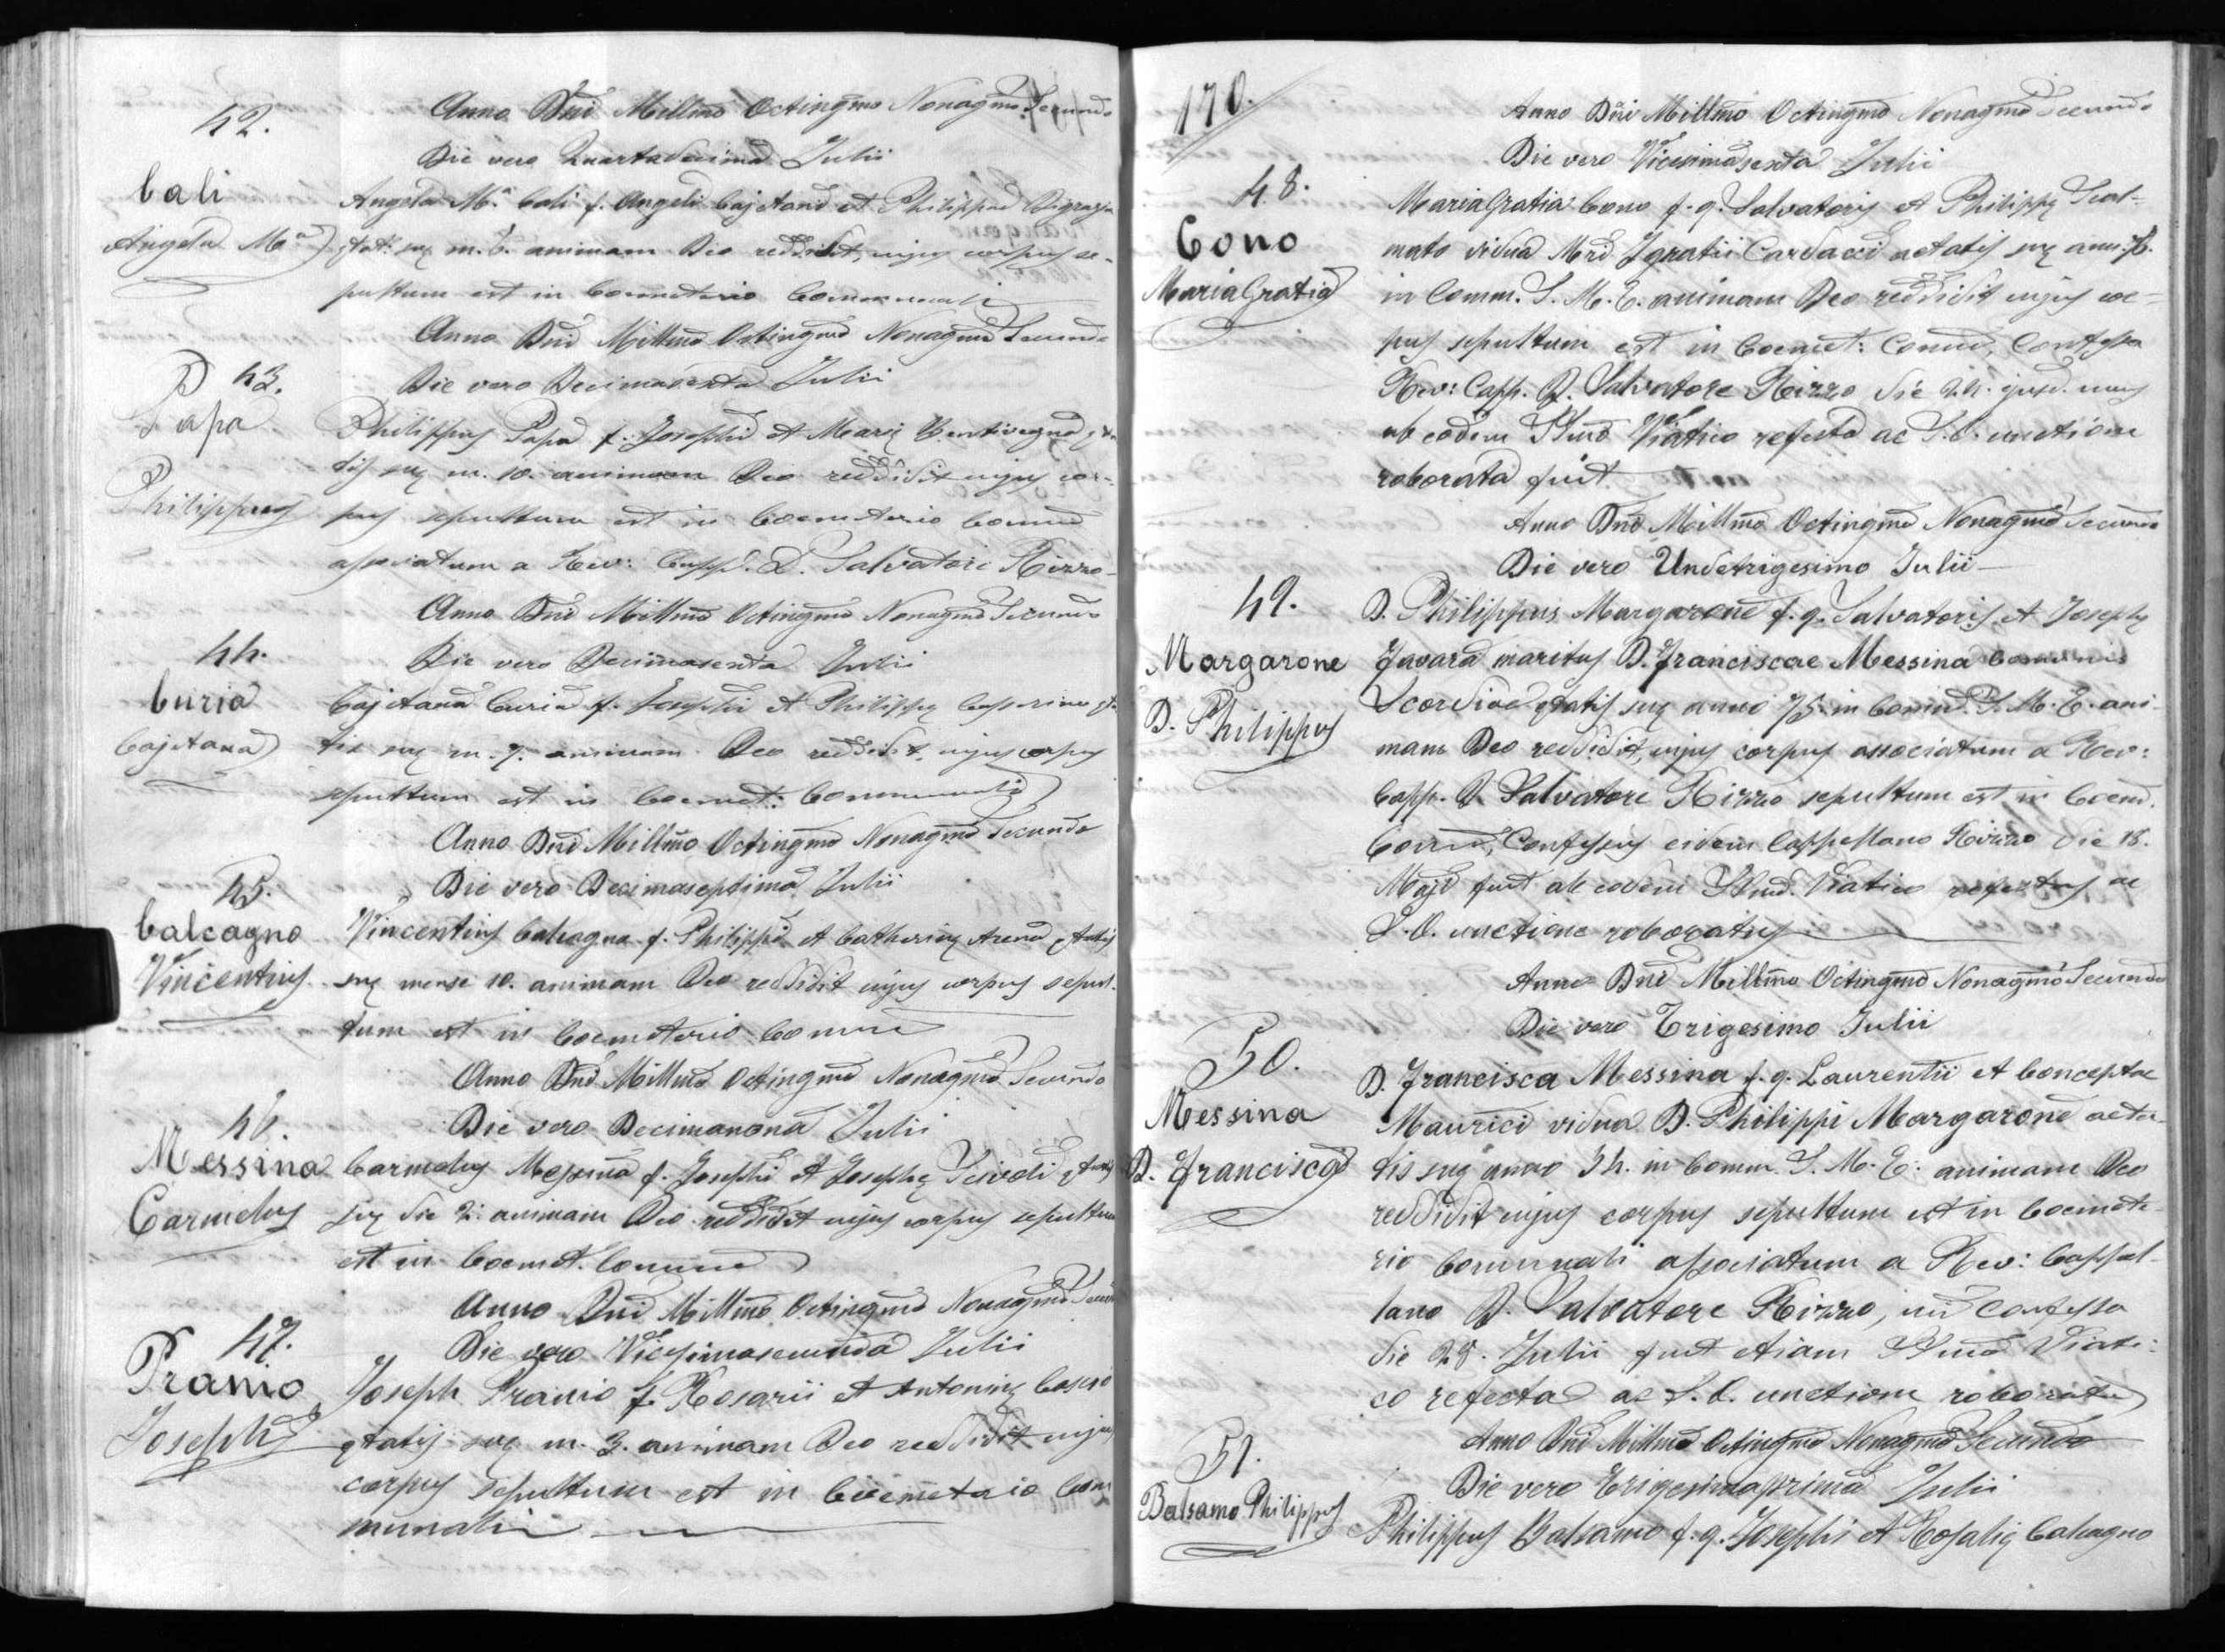 42.
Anno Dni Millmo Octingmo Nonagmo Secundo
Die vero Quartadecima Julii
Cali
Angela Ma
Angela Ma Cali f. Angeli Cajetani et Philippae Digrazia
ętat. suę m. 6. animam Deo reddidit, cujus corpus se-
pultum est in Coemeterio Communali
Anno Dni Millmo Octingmo Nonagmo Secundo
43.
Die vero Decimasexta Julii
Papa
Philippus
Philippus Papa f. Josephi et Marię Bentivegna ęta
tis suę m. 10. animam Deo reddidit cujus cor-
pus sepultum est in Coemeterio Comun
associatum a Rev: Capp. D. Salvatori Rizzo
Anno Dni Millmo Octingmo Nonagmo Secundo
44.
Die vero Decimasexta Julii
Curia
Cajetana
Cajetana Curia f. Josephi et Philippę
tis suę m. 7. animam Deo reddidit, cujus corpus
sepultum est in Coemet: Communali
Anno Dni Millmo Octingmo Nonagmo Secundo
45.
Die vero Decimaseptima Julii
Calcagno
Vincentius
Vincentius Calcagno f. Philippi et Catherinę Arena ętatis
suę mense 10. animam Deo reddidit cujus corpus sepul-
tum est in Coemeterio Comun
Anno Dni Millmo Octingmo Nonagmo Secundo
46.
Die vero Decimanona Julii
Messina
Carmelus
Carmelus Messina f. Josephi et Josephę ętatis
suę die 2. animam Deo reddidit cujus corpus sepultum
est in Coemet. Comun
Anno Dni Millmo Octingmo Nonagmo Secundo
47.
Die vero Vicesimasecunda Julii
Pranio
Joseph
Joseph Pranio f. Rosarii et Antoninę
ętatis suę m. 3. animam Deo reddidit cujus
corpus sepultum est in Coemeterio Com
munali
170.
Anno Dni Millmo Octingmo Nonagmo Secundo
Die vero Vicesimasexta Julii
48.
Cono
Maria Gratia
Maria Gratia Cono f. q. Salvatoris et Philippę Scal-
mato vidua Mri Ignatii Cardacci aetatis suę ann.
in Comm. S. M. E. animam Deo reddidit cujus cor-
pus sepultum est in Coemet: Comun, Confessa
Rev: Capp. D. Salvatore Rizzo die 24. ejusd. mens
ab eodem SSmo Viatico refecta ac S. O. unctione
roborata fuit
Anno Dni Millmo Octingmo Nonagmo Secundo
Die vero Undetrigesimo Julii
49.
Margarone
D. Philippus
D. Philippus Margarone f. q. Salvatoris et Josephę
Favara maritus D. Franciscae Messina Comunis
Scordiae ętatis suę anno 75. in Comun. S. M. E. ani-
mam Deo reddidit, cujus corpus associatum a Rev:
Capp. D. Salvatore Rizzo sepultum est in Coem.
Comun, Confessus eidem Cappellano Rizzo die 18.
Maji fuit ab eodem SSmo. Viatico refectus ac
S. O. unctione roboratus
Anno Dni Millmo Octingmo Nonagmo Secundo
Die vero Trigesimo Julii
50.
Messina
D. Francisca
D. Francisca Messina f. q. Laurentii et Conceptae
Maurici vidua D. Philippi Margarone aeta-
tis suę anno 74. in Comm. S. M. E. animam Deo
reddidit cujus corpus sepultum est in Coemete-
rio Comunali associatum a Rev: Cappel-
lano D. Salvatore Rizzo, cui confessa
die 28. Julii fuit etiam SSmo Viati-
co refecta ac S. O. unctione roborata
Anno Dni Millmo Octingmo Nonagmo Secundo
51.
Die vero Trigesimaprima Julii
Balsamo Philippus
Philippus Balsamo f. q. Josephi et Rosalię Calcagno